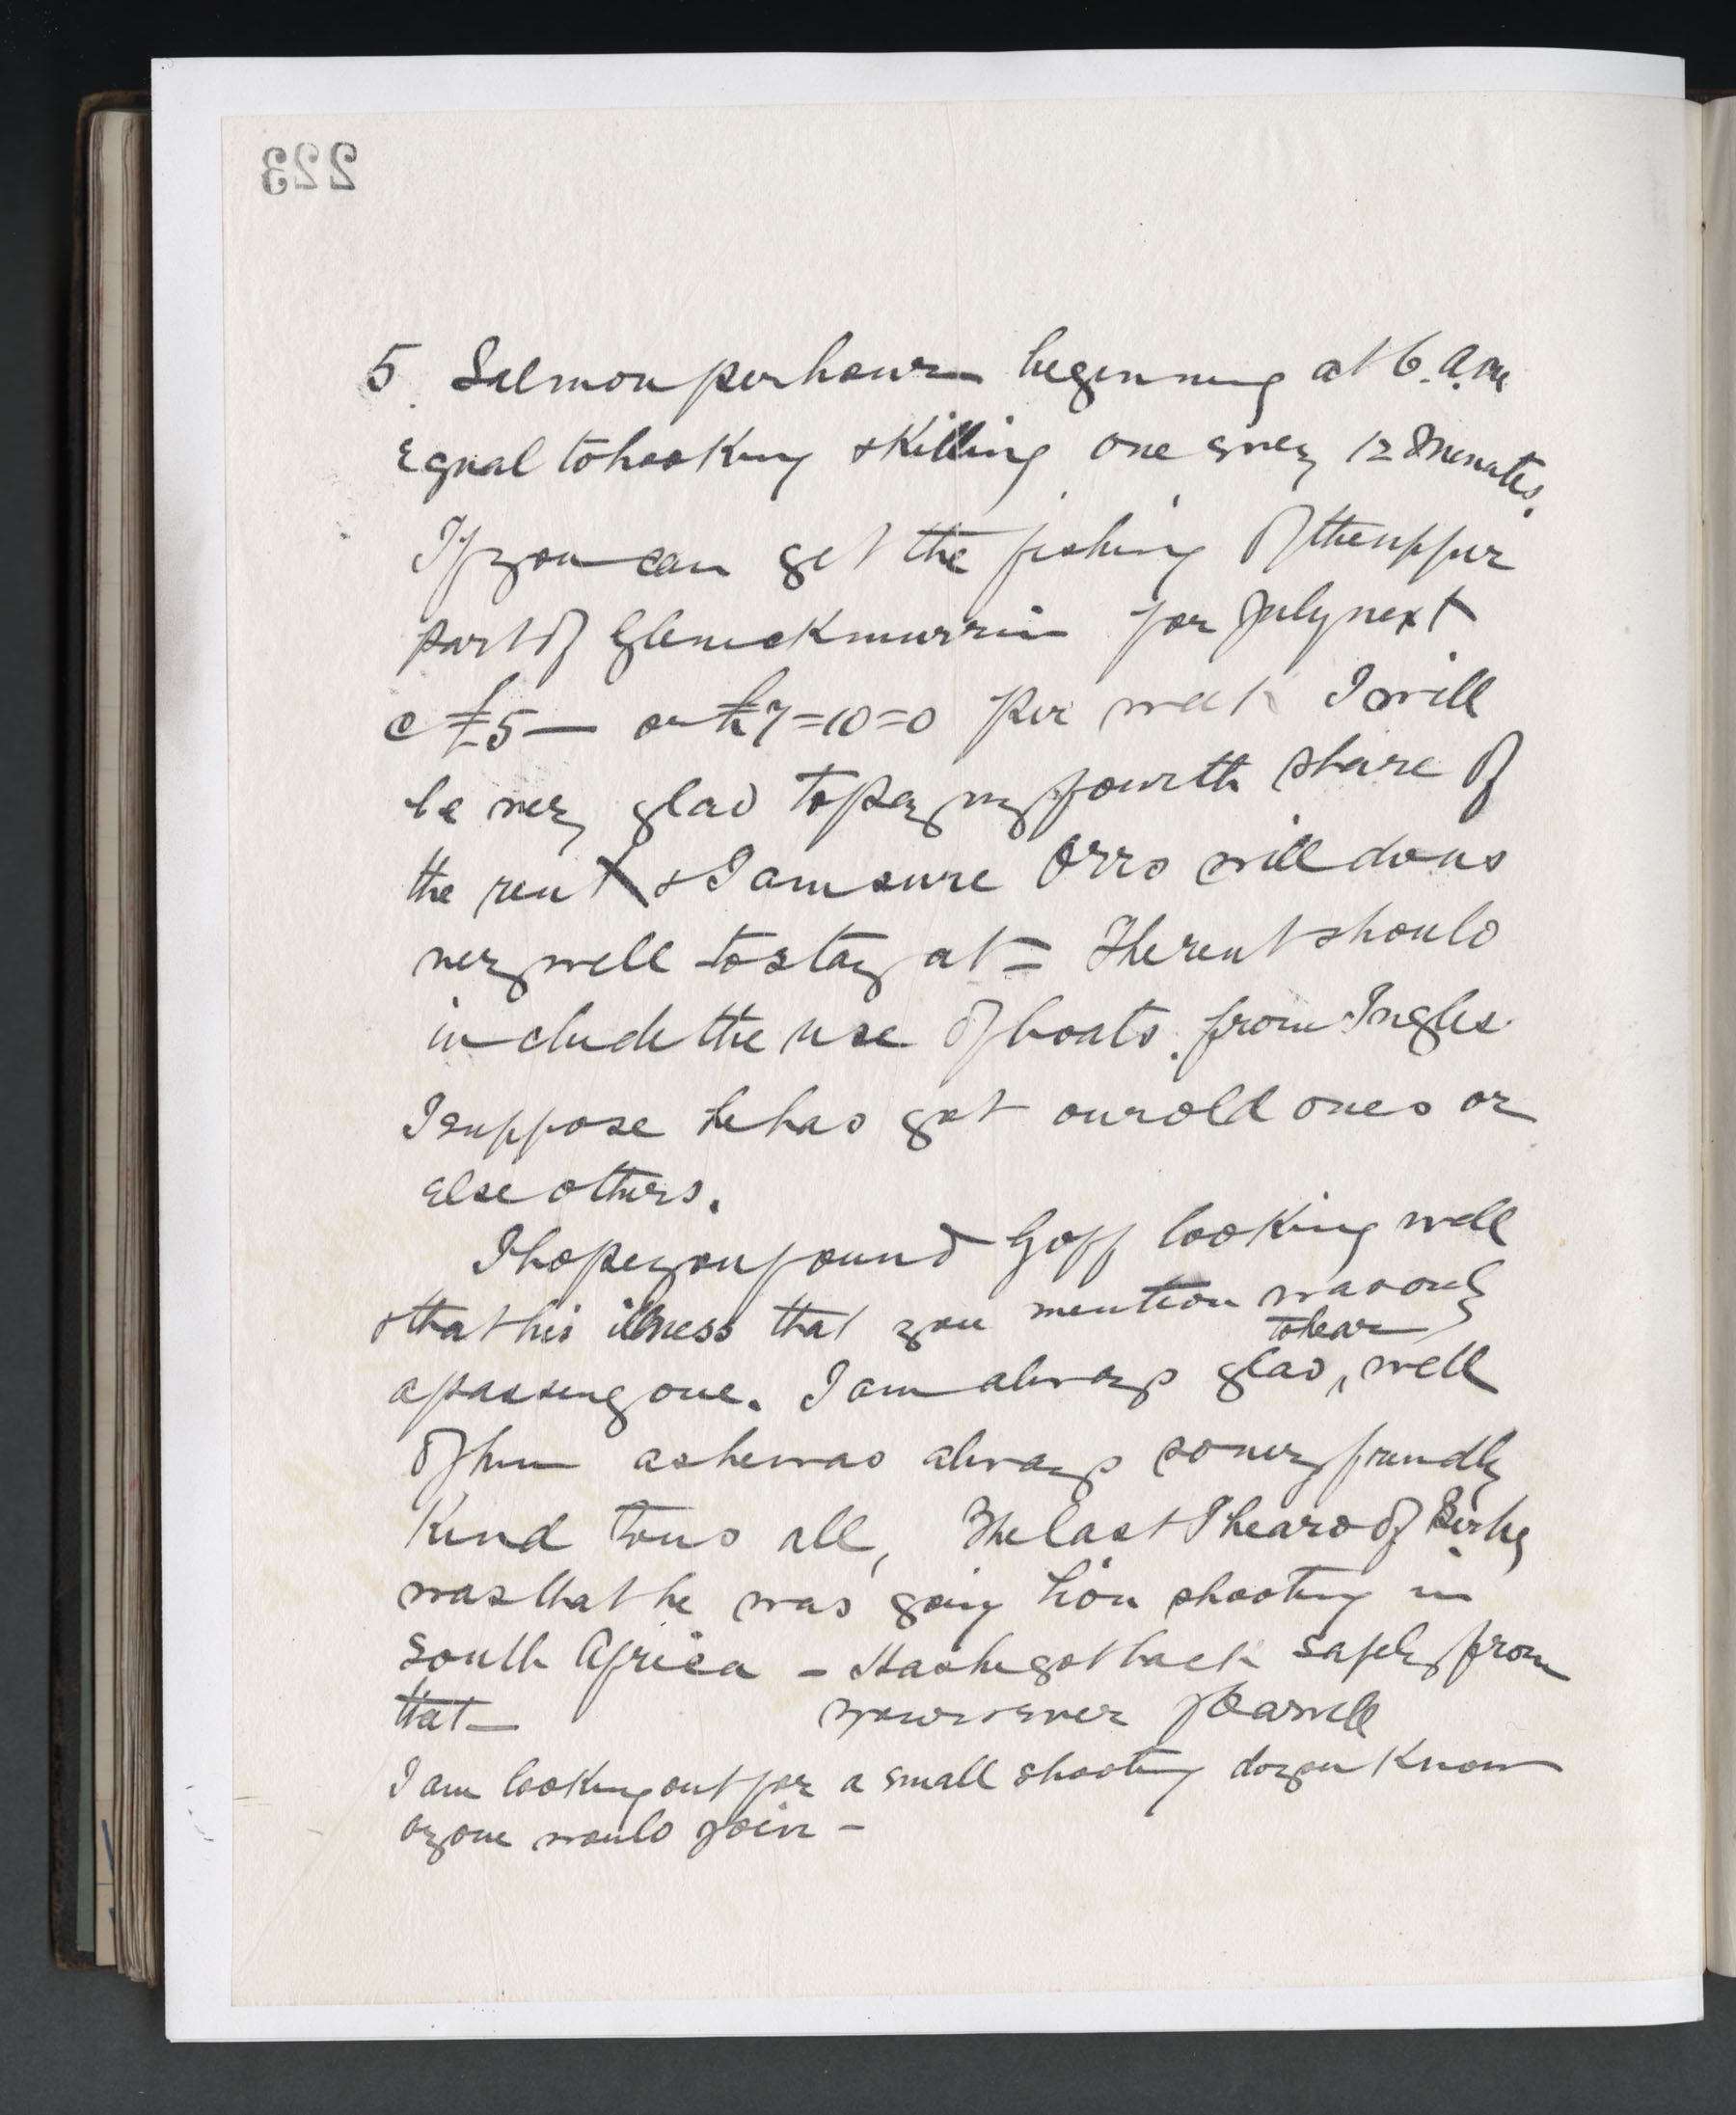 223
5 Salmon per hour beginning at 6.a.m
Equal to hooking & Killing one every 12 Minutes.
If you can get the fishing Of the upper
part of Glenickmurrin for July next
@ £5— or £7=10=0 per week I will
be very glad to pay my fourth share of
the rent & I am sure Orrs will do us
very well to stay at = The rent should
include the use Of boats. from Ingles
I suppose he has got our old ones or
Else others.
I hope you found Goff looking well
& that his illness that you mention was only
to hear
a passing one. I am always glad ^ well
Of him as he was always so very friendly
Kind to us all, The last I heard Of
was that he was going lion shooting in
South Africa – Has he got back safely from
that— yours ever
I am looking out for a small shooting do you Know
any one would join –